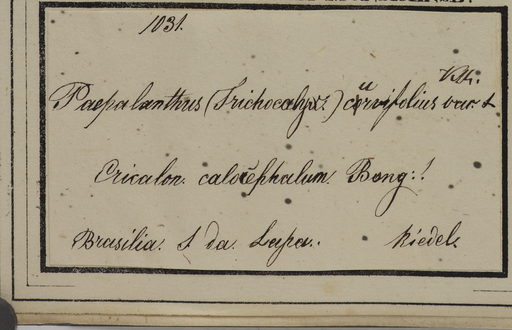 1031.
Paepalanthus (Trichocalyx) curvifolius var
Ericalon. calocephalum. Bong.!
Brasilia. S da Lapa. Riedel.